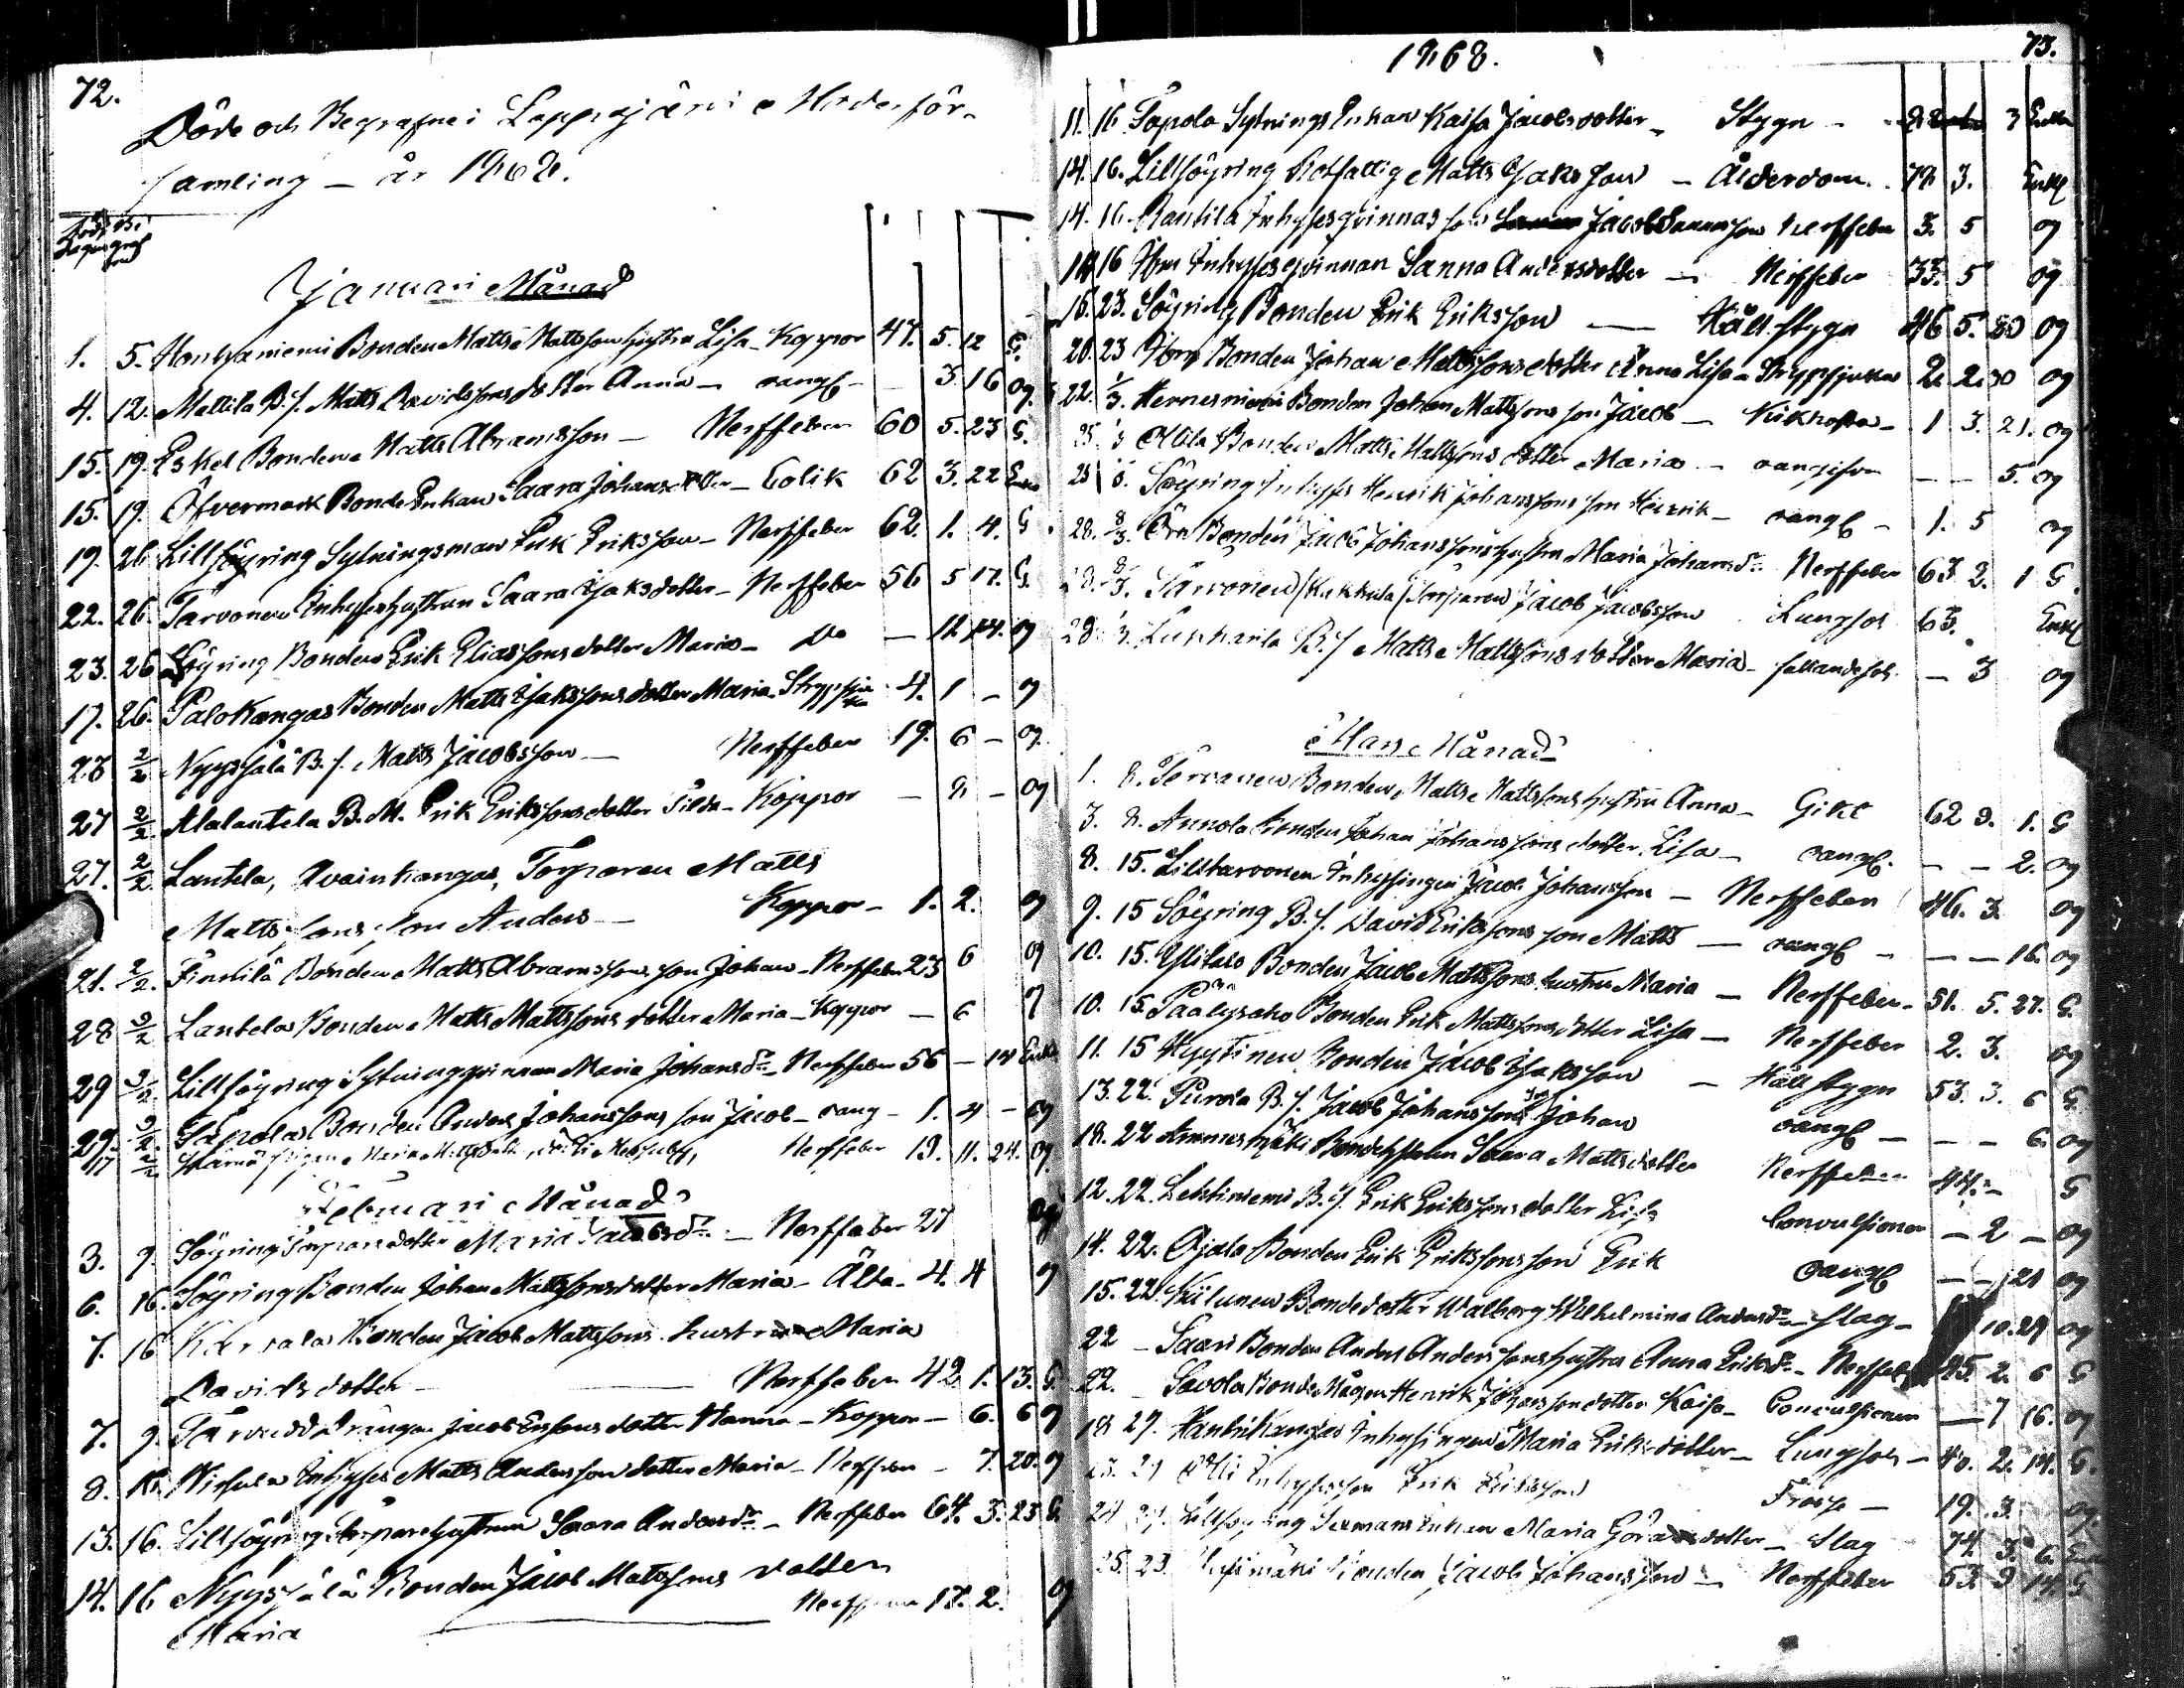 72.
Döde och Begrafne i Lappajärvi Moderför-
samling - år 1868.
Januari Månad
1. 5. Honganiemi Bonden Matts Mattsson hustru Lisa - Koppor 47. 5. 12 G.
4. 12. Mattila B. S. Matts Davidssons dotter Anna - oangf - - 3. 16 og.
15. 19. Eskel Bonden Matts Abramsson - Nerffeber 60 5. 23 G.
15. 19. Öfvermark Bonde Enkan Saara Johansdotter - Colik 62 3. 22 Enka
19. 26 Lillsöyring Sytningsman Erik Eriksson - Nerffeber 62. 1. 4. G
22. 26. Tarvonen Inhyses hustrun Saara Isaksdotter - Nerffeber 56 5 17. G.
23. 26 Söyring Bonden Erik Eliassons dotter Maria - Do - 11 14. og
17. 26. Palokangas Bonden Matts Isakssons dotter Maria Strypsjuka 4. 1 - og
28 2/2 Nyyssälä B. S. Matts Jacobsson - Nerffeber 19. 6 - og.
27 2/2. Alalantela B. M. Erik Erikssons dotter Tilda - Koppor - 8 - og
27. 2/2. Lantela, Torparen Matts
Mattssons son Anders - Koppor - 1. 2. og
21. 2/2. Finnilä Bonden Matts Abramssons son Johan - Nerffeber 23 6 og
28 2/2 Lantela Bonden Matts Mattssons dotter Maria - Koppor - 6 og
29 2/2. Lillsöyring Sytningqvinnan Maria Johansdr - Nerffeber 56 - 14 Enka
29. 2/2. Sapola Bonden Anders Johanssons son Jacob - oang - 1. 4 - og
17 2/2 Maria Mattsdotter, Nerffeber 19. 11. 24. og
Februari Månad
3. 9. Söyring Torparedotter Maria Jacobsdr - Nerffeber 27 og
6. 16. Söyring Bonden Johan Mattssons dotter Maria - Älta - 4. 4 og
7. 16 Karvala Bonden Jacob Mattssons hustru Maria
Davidsdotter - Nerffeber 42. 1. 13. G.
7. 9. Drängen Jacob Erssons dotter Hanna - Koppor - 6. 6 og
8. 16. Inhyses Matts Andersson dotter Maria - Nerffeber - 7. 20. og
13. 16. Lillsöyring Torpare hustrun Saara Andersdr - Nerffeber 64. 3. 23 G.
14. 16 Nyyssälä Bonden Jacob Matssons dotter
Maria Nerffeber 17. 2. og
1868.
73.
11. 16 Sapola Sytnings Enkan Kaisa Jacobsdotter - Stygn - 3 Enka
14. 16. Lillsöyring Rotfattig Matts Isaksson - Ålderdom. 72 3. Enkl
14. 16. Rantila Inhysesqvinnas son Jacob Sannasson Nerffeber 3. 5 og
16 Inhysesqvinnan Sanna Andersdotter - Nerffeber 33. 5 og
16. 23. Söyring Bonden Erik Eriksson - Håll stygn 46 5. 20 og
20. 23 Bonden Johan Mattssons dotter Anna Lisa - Strypsjuka 2. 2. 20 og
22. 1/3. Hernesniemi Bonden Johan Mattssons son Jacob - Kikhosta - 1 3. 21. og
25. 1/3 Bonden Matts Mattssons dotter Maria - oangifven - - 5. og
25 1/3. Söyring Inhyses Henrik Johanssons son Henrik - oangf - 1. 5 og
28. 8/3. Bonden Jacob Johanssons hustru Maria Johansdr Nerffeber 63 2. 1 G.
28. 8/3. Tarvonen (Kukkula) Torparen Jacob Jacobsson Lungsot 63. Enkl
28. 1/3. Lunkkanla B. S Matts Mattssons dotter Maria - fallandesot. - 3 og
Mars Månad
1. 8. Tervanen Bonden Matts Mattssons hustru Anna - Gikt 62 9. 1. G
3. 8. Annola Bonden Johan Johanssons dotter Lisa - oangf. - - 2. og
8. 15. Lilltarvonen Inhysingen Jacob Johansson - Nerffeber 46. 3. og
9. 15 Söyring B. S. David Erikssons son Matts - oangf - - - 16. og
10. 15. Ylitalo Bonden Jacob Mattssons hustru Maria - Nerffeber - 51. 5. 27. G.
10. 15. Bonden Erik Mattssons dotter Lisa - Nerffeber 2. 3. og
11. 15 Hyytinen Bonden Jacob Isaksson - Håll stygn 53. 3. 6 G.
13. 22. Purola B. S. Jacob Johanssons son Johan oangf - - - 6. og
18. 22 Ammesmäki Bondehustrun Saara Mattsdotter Nerffeber 44. - G
12. 22. Lehtiniemi B. S. Erik Erikssons dotter Lisa Convulsioner - 2 - og
14. 22. Ojala Bonden Erik Erikssons son Erik oangf - - 21 og
15. 22. Kiilunen Bondedotter Walborg Wilhelmina Andersdr - slag - 10. 29 og
22 - Saari Bonden Anders Anderssons hustru Anna Eriksdr - Nerffeber 45. 2. 6 G
22. - Savola Bonde Mågen Henrik Johansson dotter Kaisa - Convulsioner - 7 16. og
18 29. Hankikangas Inhysingen Maria Eriksdotter - Lungsot - 40. 2. 14. G.
23. 29 Inhyses son Erik Eriksson Frossa - 19. 3. og.
24 29. Lillsöyring Enkan Maria Göransdotter - Slag 74 3. 6 Enka
25. 29. Bonden Jacob Johansson - Nerffeber 53. 9 14. G